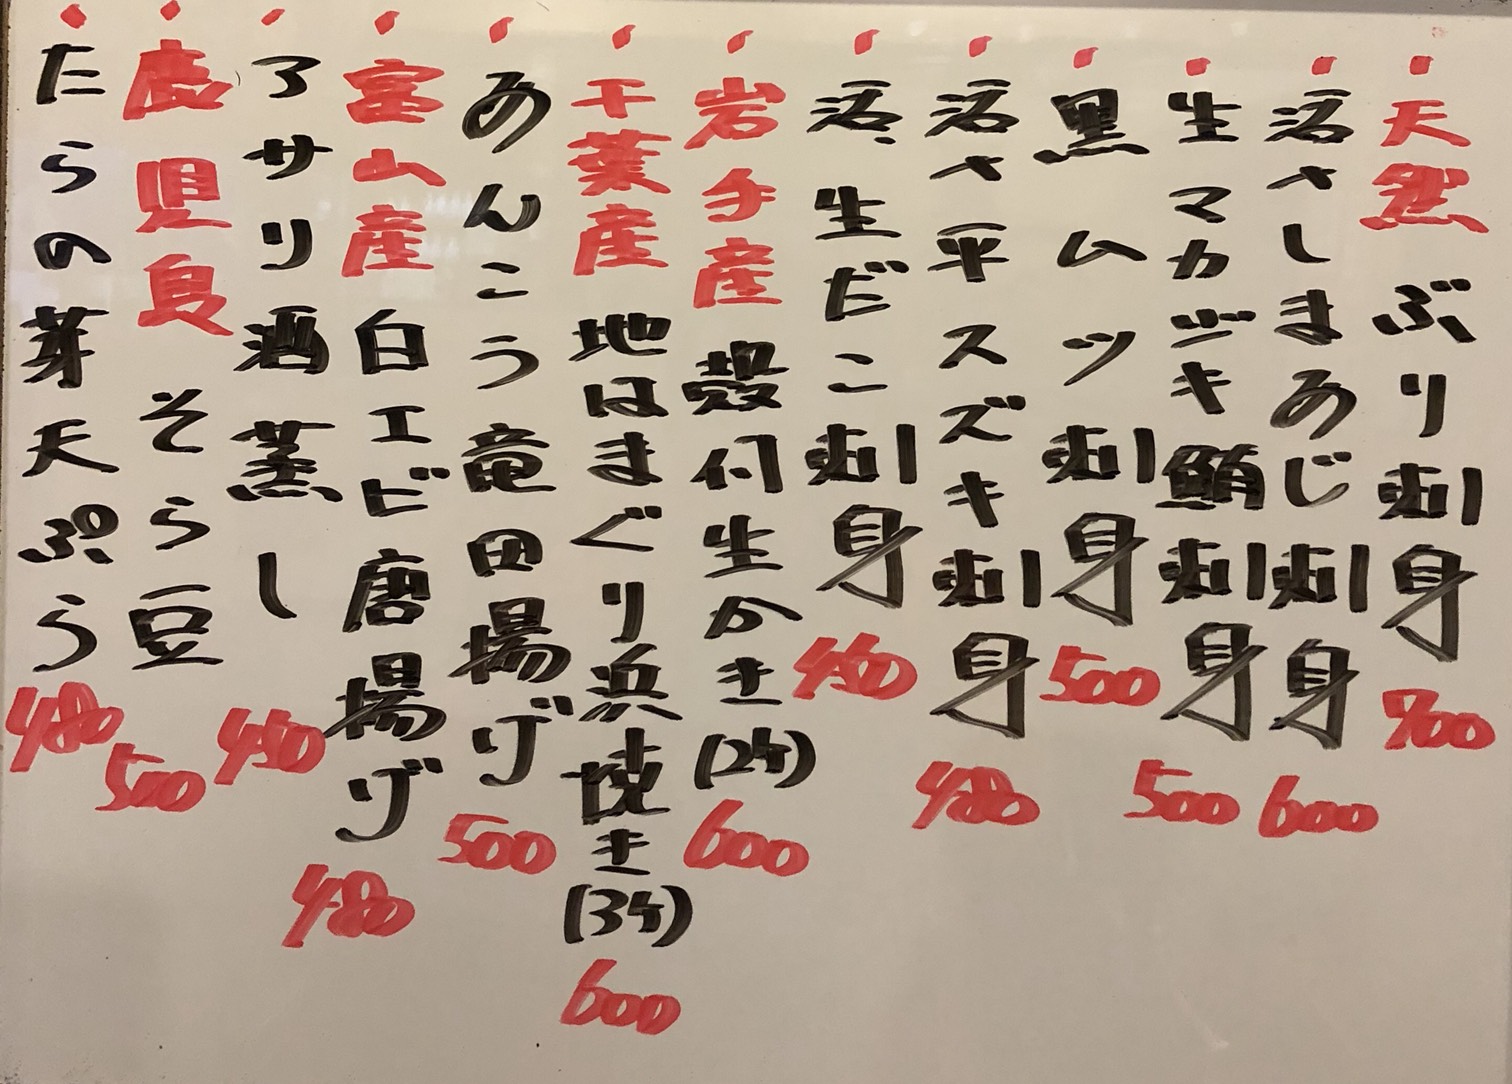 天然 ぶり刺身 700
活〆しまあじ刺身 600
生マカジキ鮪刺身 500
黒ムツ刺身 500
活〆平スズキ刺身 480
活、生だこ刺身 450
岩手産 殻付生かき(2ケ) 600
千葉産 地はまぐり浜焼き(3ケ) 600
あんこう竜田揚げ 500
富山産 白エビ唐揚げ 480
アサリ酒蒸し 450
鹿児島 そら豆 500
たらの芽天ぷら 480